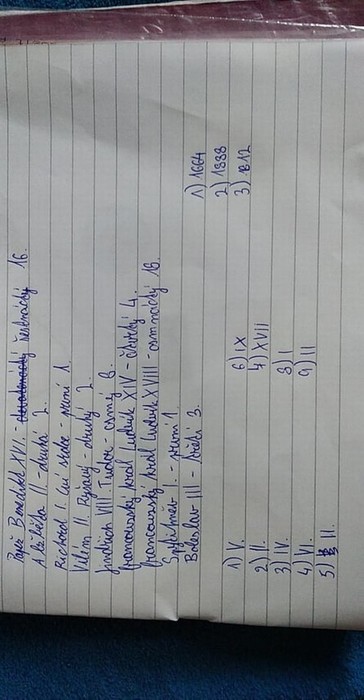 Papež Benedikt XVI. - šestnáctý 16.
Alžběta II - druhá 2.
Richard I. Lví srdce - první 1.
Vilém II. Ryšavý - druhý 2.
Jindřich VIII. Tudor - osmý 8.
francouzský král Ludvík XIV - čtvrtý 4.
francouzský král Ludvík XVIII - osmnáctý 18.
Spytihněv I. - první 1
Boleslav III - třetí 3.
1) V.
2) II.
3) IV.
4) VI.
5) II.
6) IX
7) XVII
8) I
9) II
1) 1664
2) 1338
3) 1812